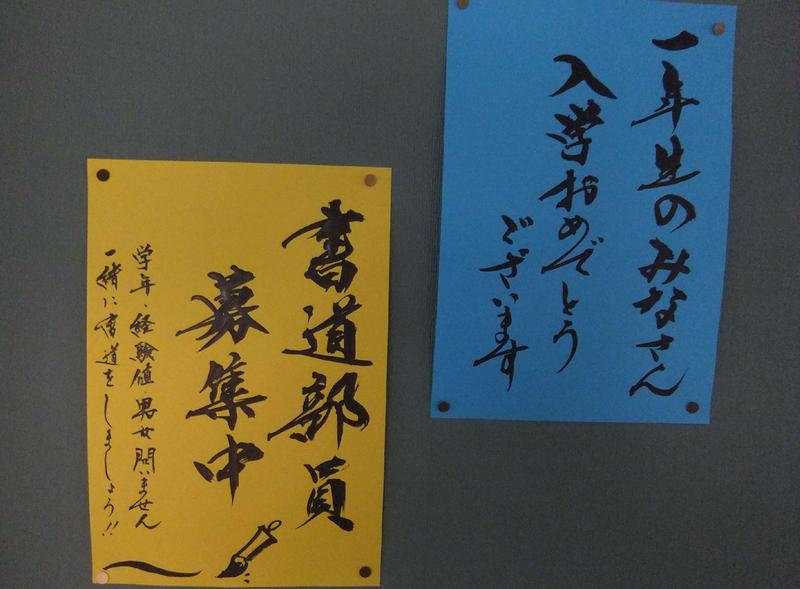 一年生のみなさん
入学おめでとう
ございます
書道部員
募集中
学年・経験値・男女問いません
一緒に書道をしましょう!!